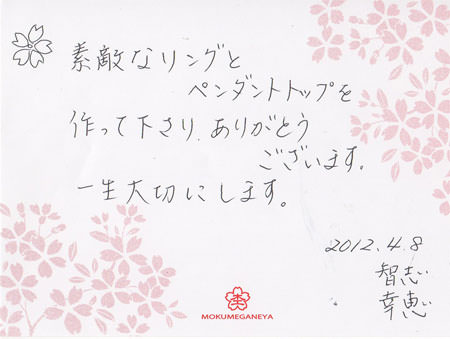 素敵なリングと
ペンダントトップを
作って下さり、ありがとう
ございます。
一生大切にします。
2012.4.8
智志
幸恵
MOKUMEGANEYA